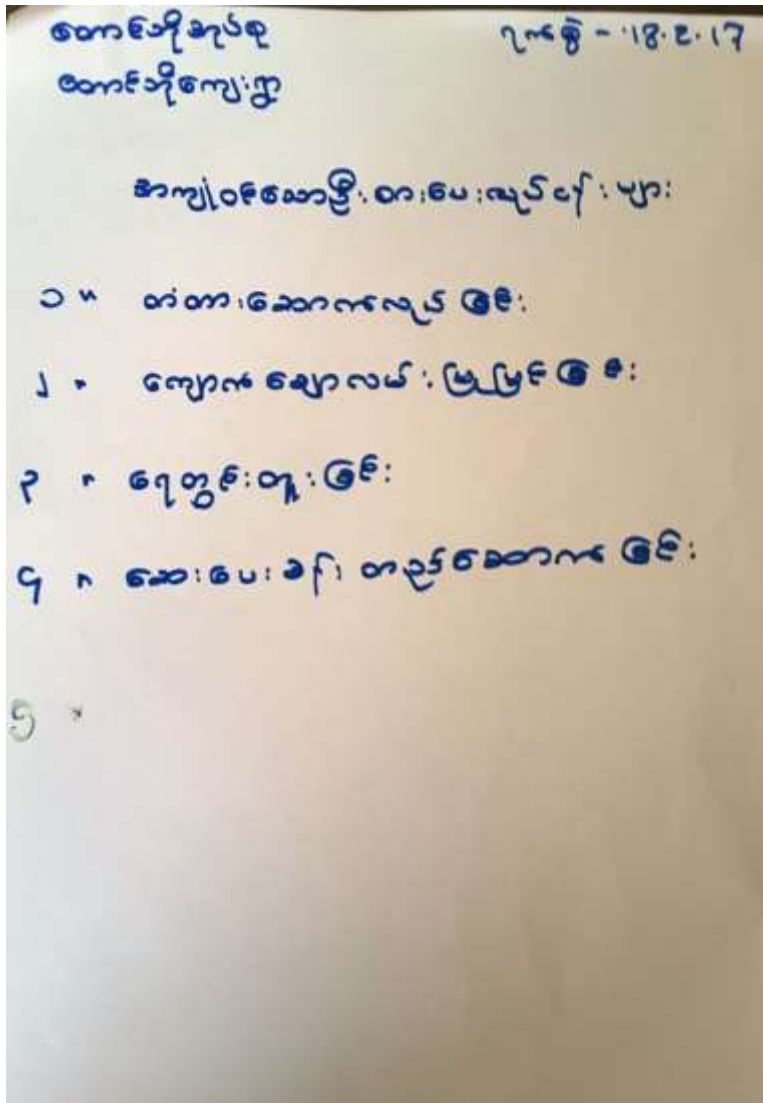 တောင်ဘိုအုပ်စု ရက်စွဲ - 18.2.17
တောင်ဘိုကျေးရွာ
အကျုံဝင်သောဦးစားပေးလုပ်ငန်းများ
၁။ တံတားဆောက်လုပ်ခြင်း
၂။ ကျောက်ချောလမ်းပြုပြင်ခြင်း
၃။ ရေတွင်းတူးခြင်း
၄။ ဆေးပေးခန်းတည်ဆောက်ခြင်း
၅။